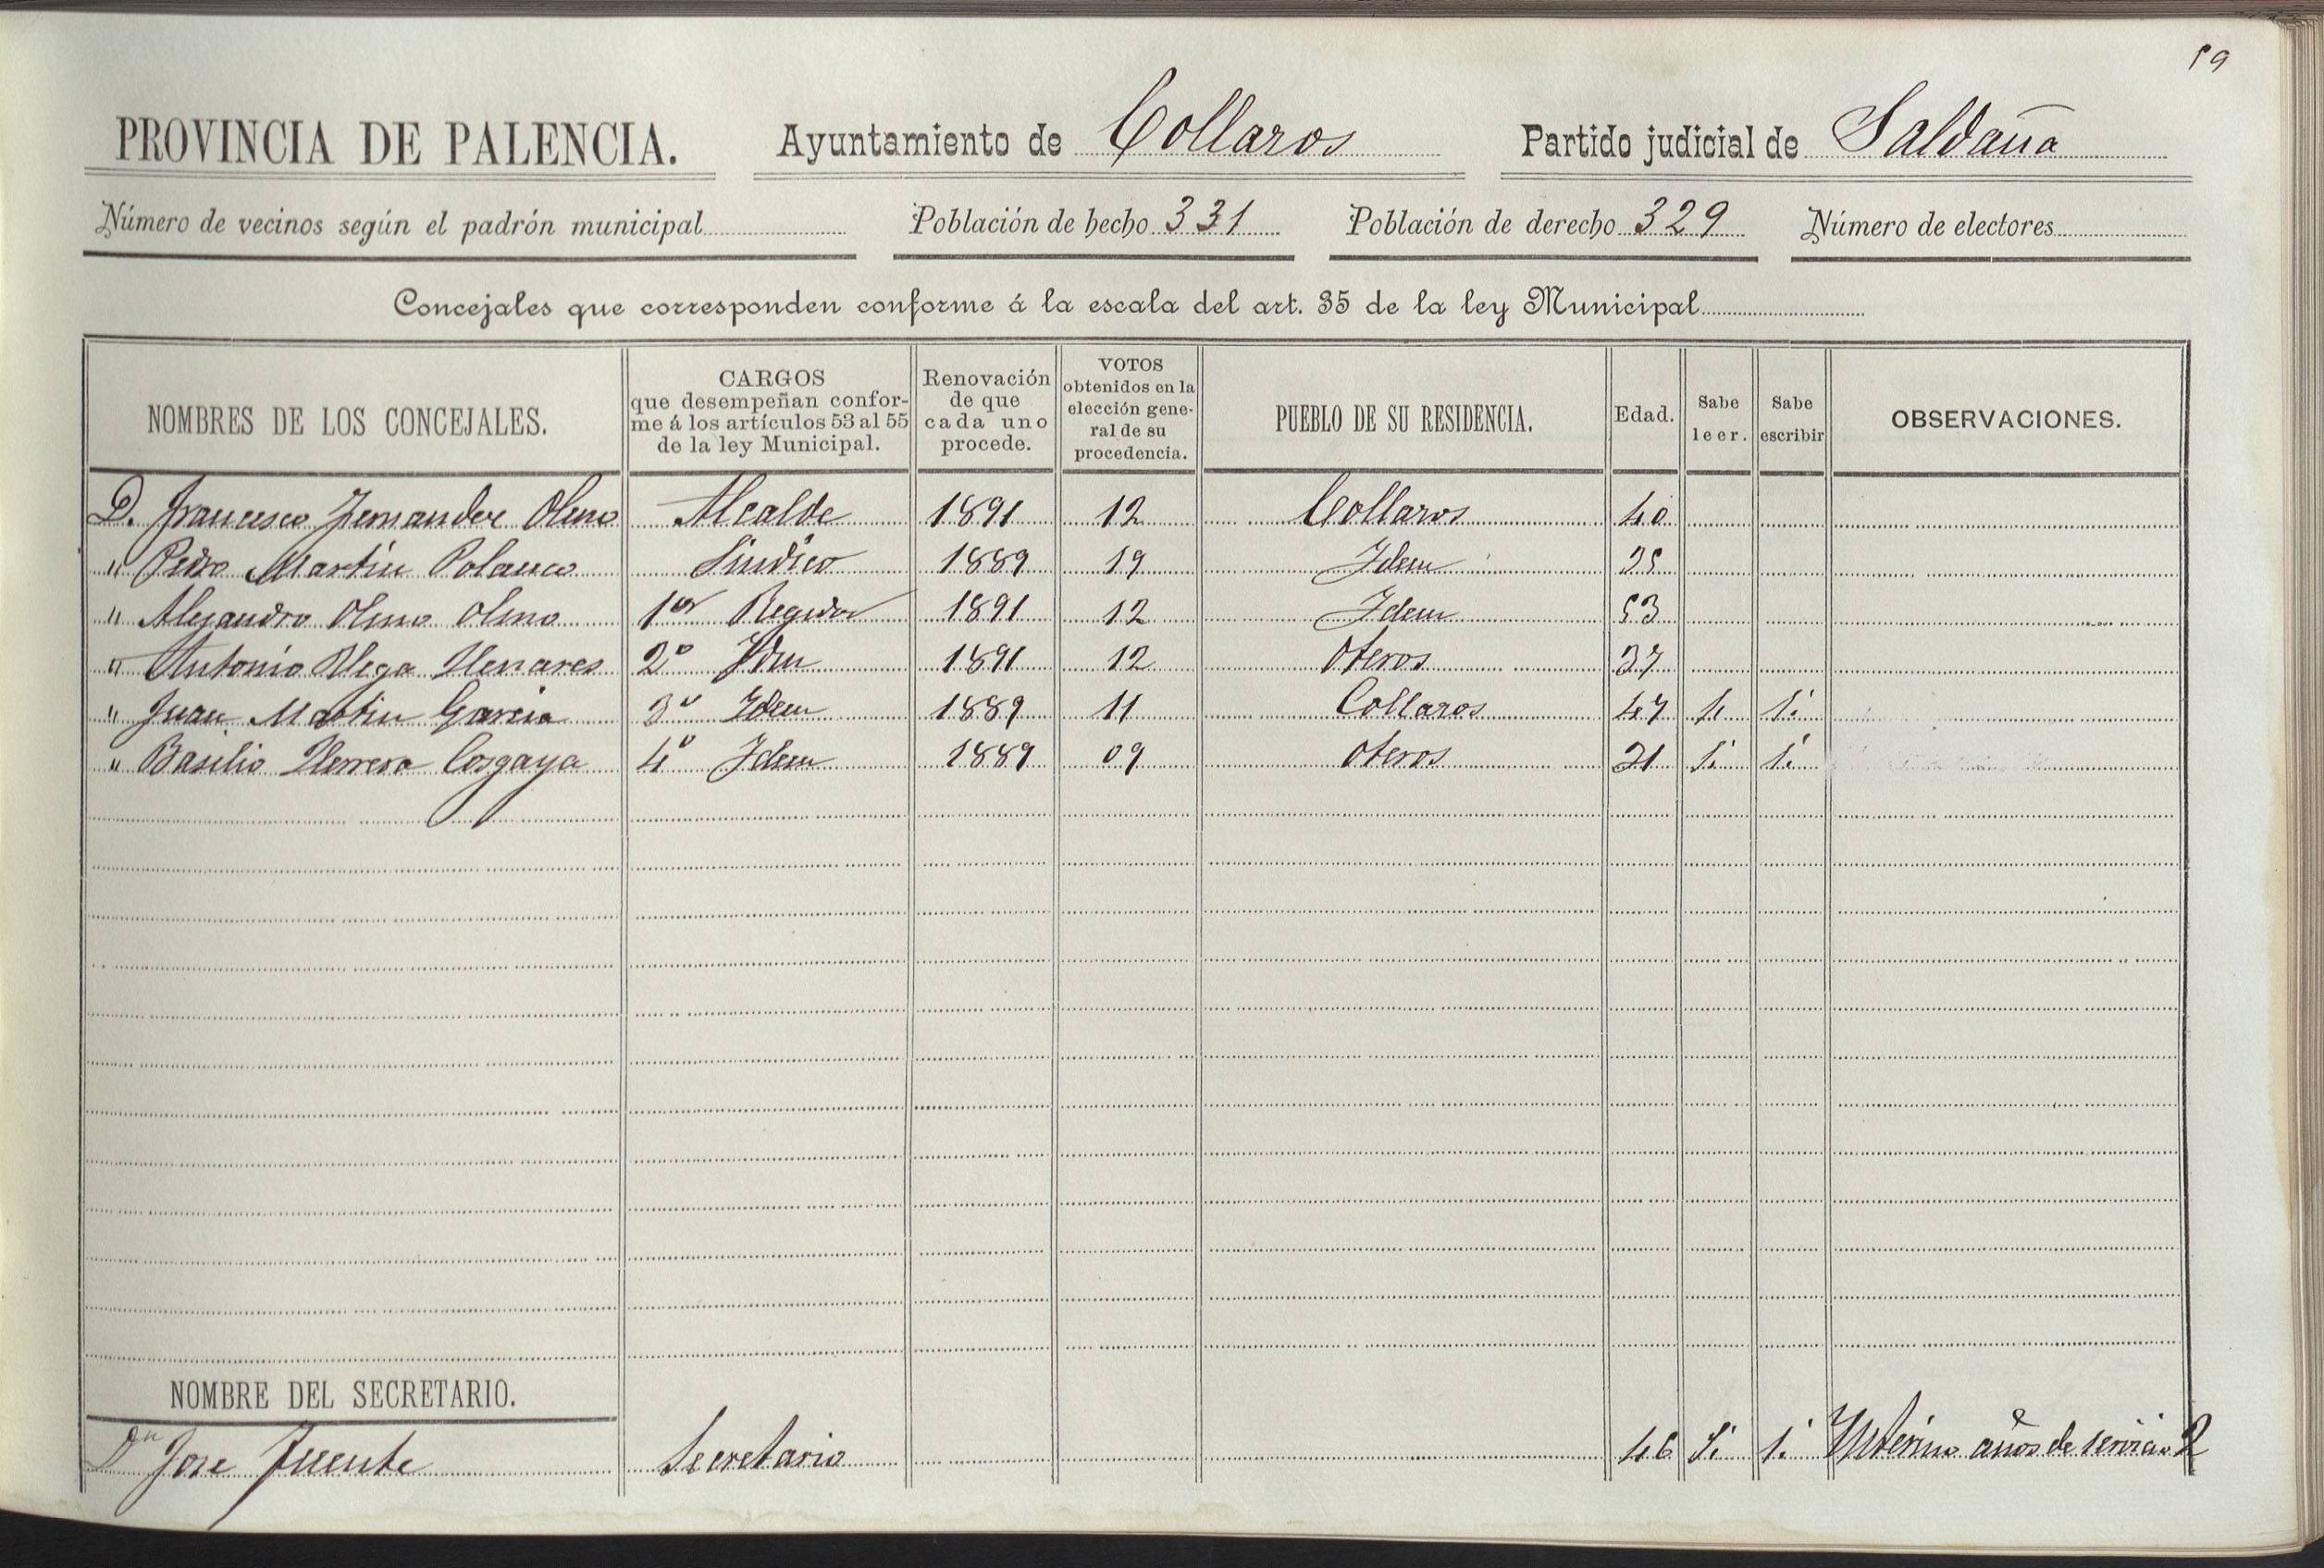 59
PROVINCIA DE PALENCIA. Ayuntamiento de Collazos Partido judicial de Saldaña
Número de vecinos según el padrón municipal Población de hecho 331 Población de derecho 329 Número de electores
Concejales que corresponden conforme á la escala del art. 35 de la ley Municipal
NOMBRES DE LOS CONCEJALES. CARGOS que desempeñan conforme á los artículos 53 al 55 de la ley Municipal. Renovación de que cada uno procede. VOTOS obtenidos en la elección general de su procedencia. PUEBLO DE SU RESIDENCIA. Edad. Sabe leer. Sabe escribir OBSERVACIONES.
D. Francisco Fernandez Olmo Alcalde 1891 12 Collazos 40
" Pedro Martin Polanco Sindico 1889 19 Idem 35
" Alejandro Olmo Olmo 1er Regidor 1891 12 Idem 53
" Antonio Vega Henares 2º Idem 1891 12 Oteros 37
" Juan Martin Garcia 3º Idem 1889 11 Collazos 47 Si Si
" Basilio Herrero Cosgaya 4º Idem 1889 09 Oteros 31 Si Si
NOMBRE DEL SECRETARIO.
Dn Jose Fuente Secretario 46 Si Si Interino años de servicio 2